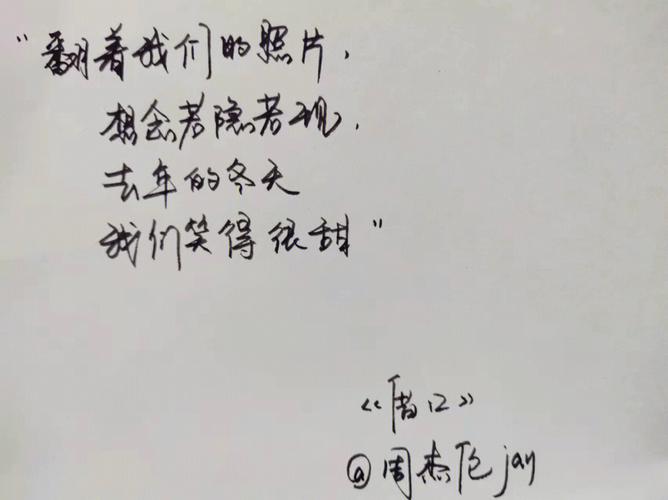 "翻着我们的照片,
想念若隐若现,
去年的冬天
我们笑得很甜"
《借口》
@周杰伦jay